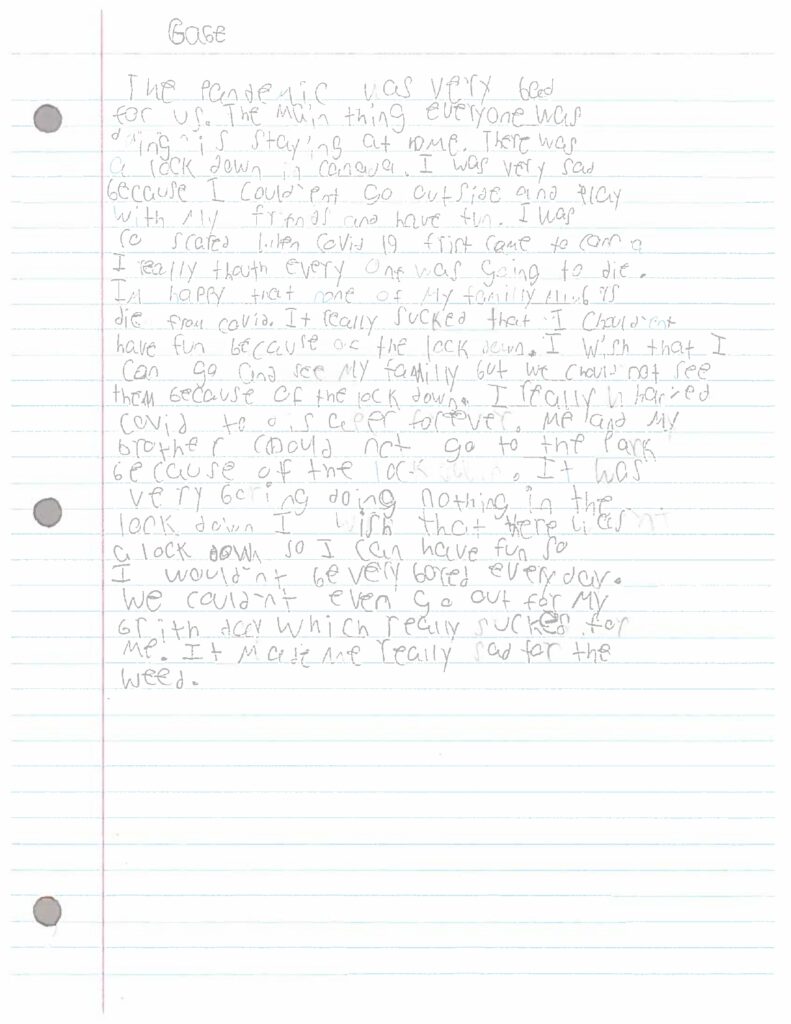 Gage
The pandemic was very bad
for us. The main thing everyone was
doing is staying at home. There was
a lock down in canada. I was very sad
because I could'ent go outside and play
with my friends and have fun. I was
so scared when Covid 19 frist came to
I really thouth every one was going to die.
Im happy that none of my familly
die from covid. It really sucked that I Chould'ent
have fun because of the lock down. I wish that I
can go and see my familly but we chould not see
them because of the lock down. I really
covid to forever. me and my
brother could not go to the park
because of the lock down. It was
very boring doing nothing in the
lock down I wish that there
a lock down so I can have fun so
I would'nt be very bored every day.
We could'nt even go out for my
brith day which really sucked for
me. It made me really sad for the
weed.